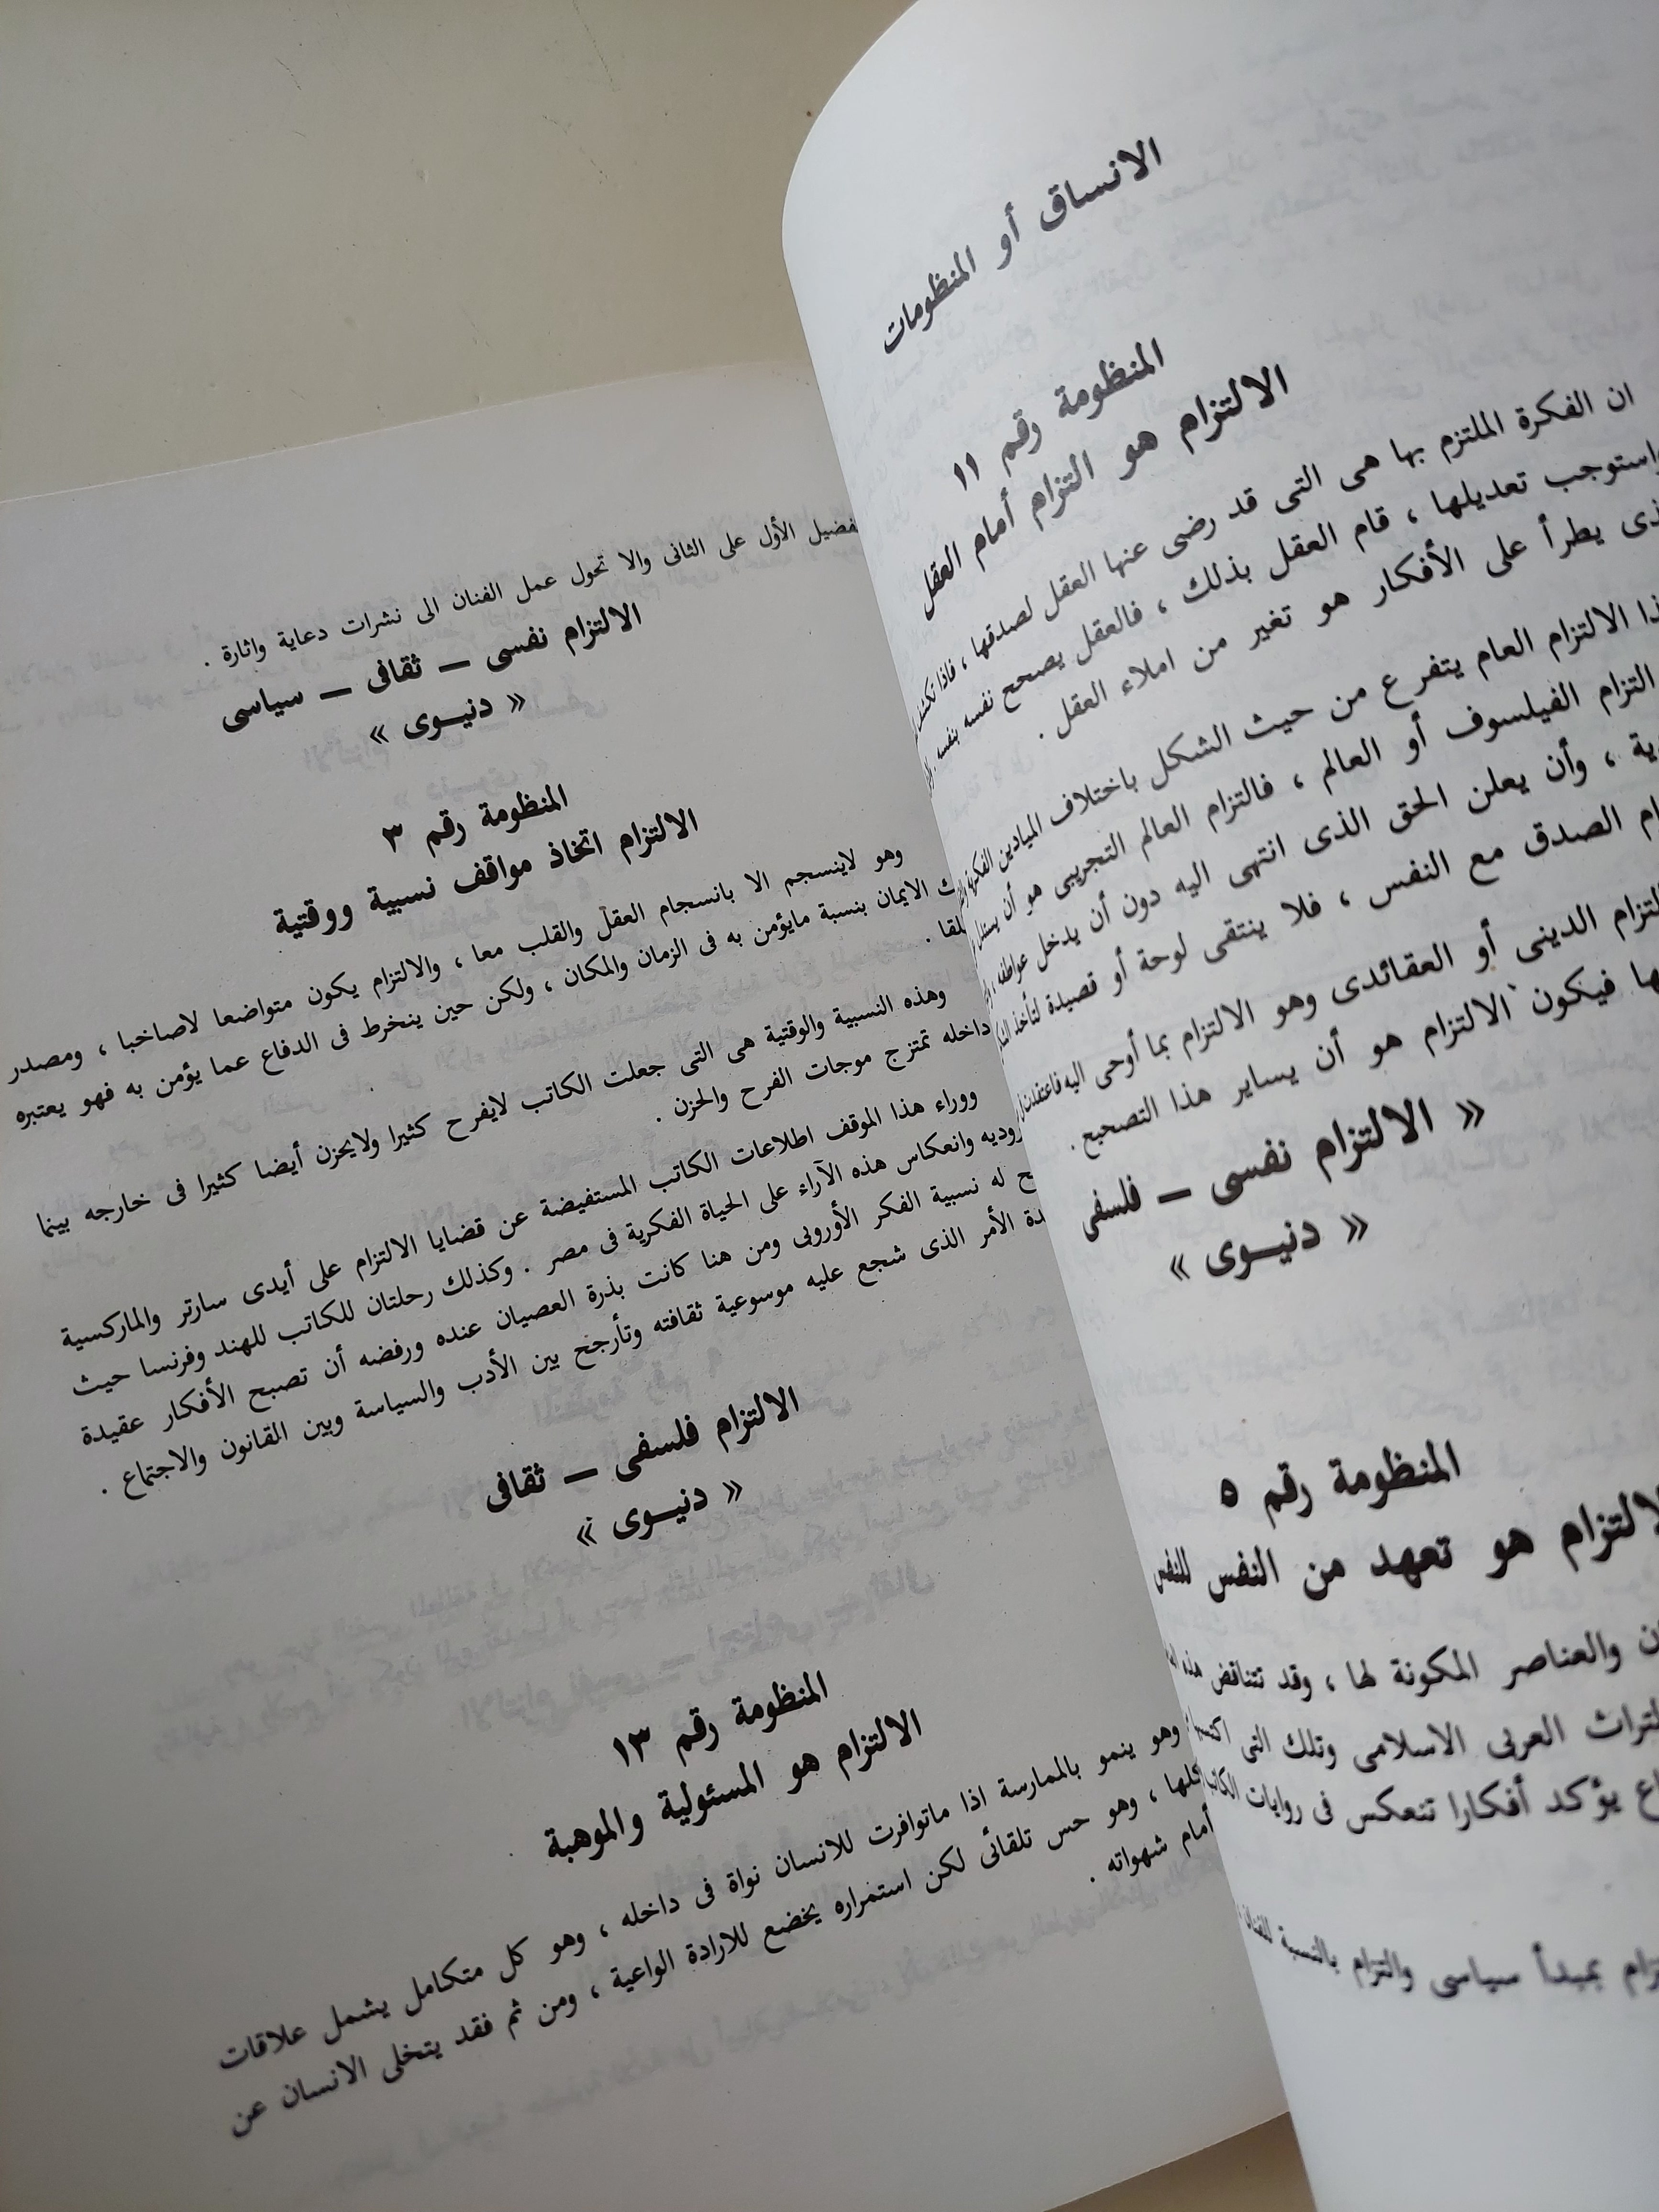 الانساق أو المنظومات
المنظومة رقم ١١
الالتزام هو التزام أمام العقل
ان الفكرة الملتزم بها هى التى قد رضى عنها العقل لصدقها ، فاذا
واستوجب تعديلها ، قام العقل بذلك ، فالعقل يصحح نفسه بنفسه
يطرأ على الأفكار هو تغير من املاء العقل .
الالتزام العام يتفرع من حيث الشكل باختلاف الميادين الفكرية
التزام الفيلسوف أو العالم ، فالتزام العالم التجريبى هو أن
، وأن يعلن الحق الذى انتهى اليه دون أن يدخل عواطفه
الصدق مع النفس ، فلا ينتقى لوحة أو قصيدة
الدينى أو العقائدى وهو الالتزام بما أوحى اليه
فيكون الالتزام هو أن يساير هذا التصحيح .
« الالتزام نفسى — فلسفى
« دنيوى »
المنظومة رقم ٥
الالتزام هو تعهد من النفس للنفس
والعناصر المكونة لها ، وقد تتناقض هذه
التراث العربى الاسلامى وتلك التى
يؤكد أفكارا تنعكس فى روايات الكاتب
بمبدأ سياسى والتزام بالنسبة للفنان
الأول على الثانى والا تحول عمل الفنان الى نشرات دعاية واثارة .
الالتزام نفسى — ثقافى — سياسى
« دنيوى »
المنظومة رقم ٣
الالتزام اتخاذ مواقف نسبية ووقتية
وهو لاينسجم الا بانسجام العقل والقلب معا ، والالتزام يكون متواضعا لاصاخبا ، ومصدر
الايمان بنسبة مايؤمن به فى الزمان والمكان ، ولكن حين ينخرط فى الدفاع عما يؤمن به فهو يعتبره
وهذه النسبية والوقتية هى التى جعلت الكاتب لايفرح كثيرا ولايحزن أيضا كثيرا فى خارجه بينما
داخله تمتزج موجات الفرح والحزن .
ووراء هذا الموقف اطلاعات الكاتب المستفيضة عن قضايا الالتزام على أيدى سارتر والماركسية
وانعكاس هذه الآراء على الحياة الفكرية فى مصر . وكذلك رحلتان للكاتب للهند وفرنسا حيث
له نسبية الفكر الأوروبى ومن هنا كانت بذرة العصيان عنده ورفضه أن تصبح الأفكار عقيدة
الأمر الذى شجع عليه موسوعية ثقافته وتأرجح بين الأدب والسياسة وبين القانون والاجتماع .
الالتزام فلسفى — ثقافى
« دنيوى »
المنظومة رقم ١٣
الالتزام هو المسئولية والموهبة
وهو ينمو بالممارسة اذا ماتوافرت للانسان نواة فى داخله ، وهو كل متكامل يشمل علاقات
كلها ، وهو حس تلقائى لكن استمراره يخضع للارادة الواعية ، ومن ثم فقد يتخلى الانسان عن
أمام شهواته .